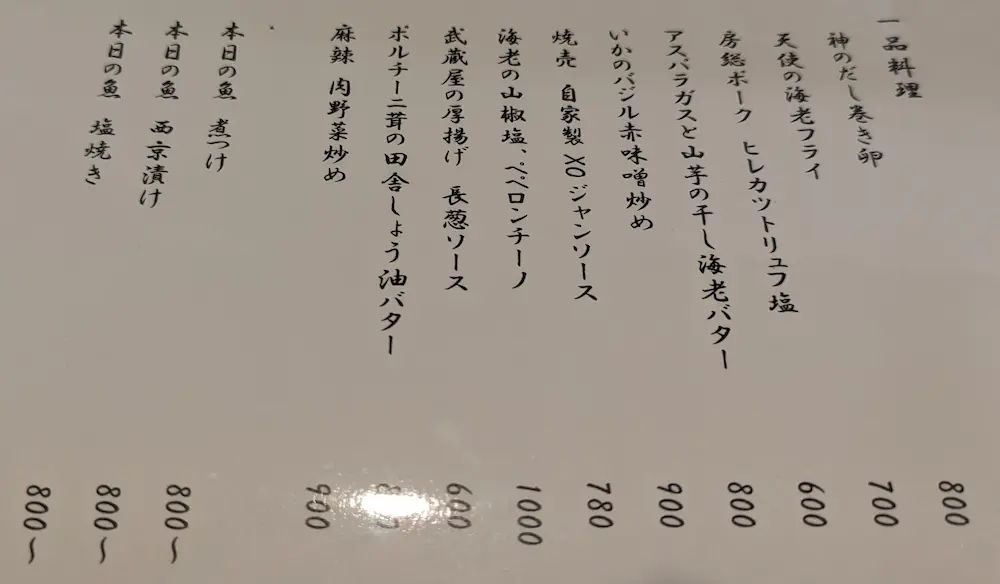 一品料理
神のだし巻き卵 800
天使の海老フライ 700
房総ポーク ヒレカツトリュフ塩 600
アスパラガスと山芋の干し海老バター 800
いかのバジル赤味噌炒め 900
焼売 自家製XOジャンソース 780
海老の山椒塩、ペペロンチーノ 1000
武蔵屋の厚揚げ 長葱ソース 600
ポルチーニ茸の田舎しょう油バター
麻辣 肉野菜炒め 900
本日の魚 煮つけ 800〜
本日の魚 西京漬け 800〜
本日の魚 塩焼き 800〜